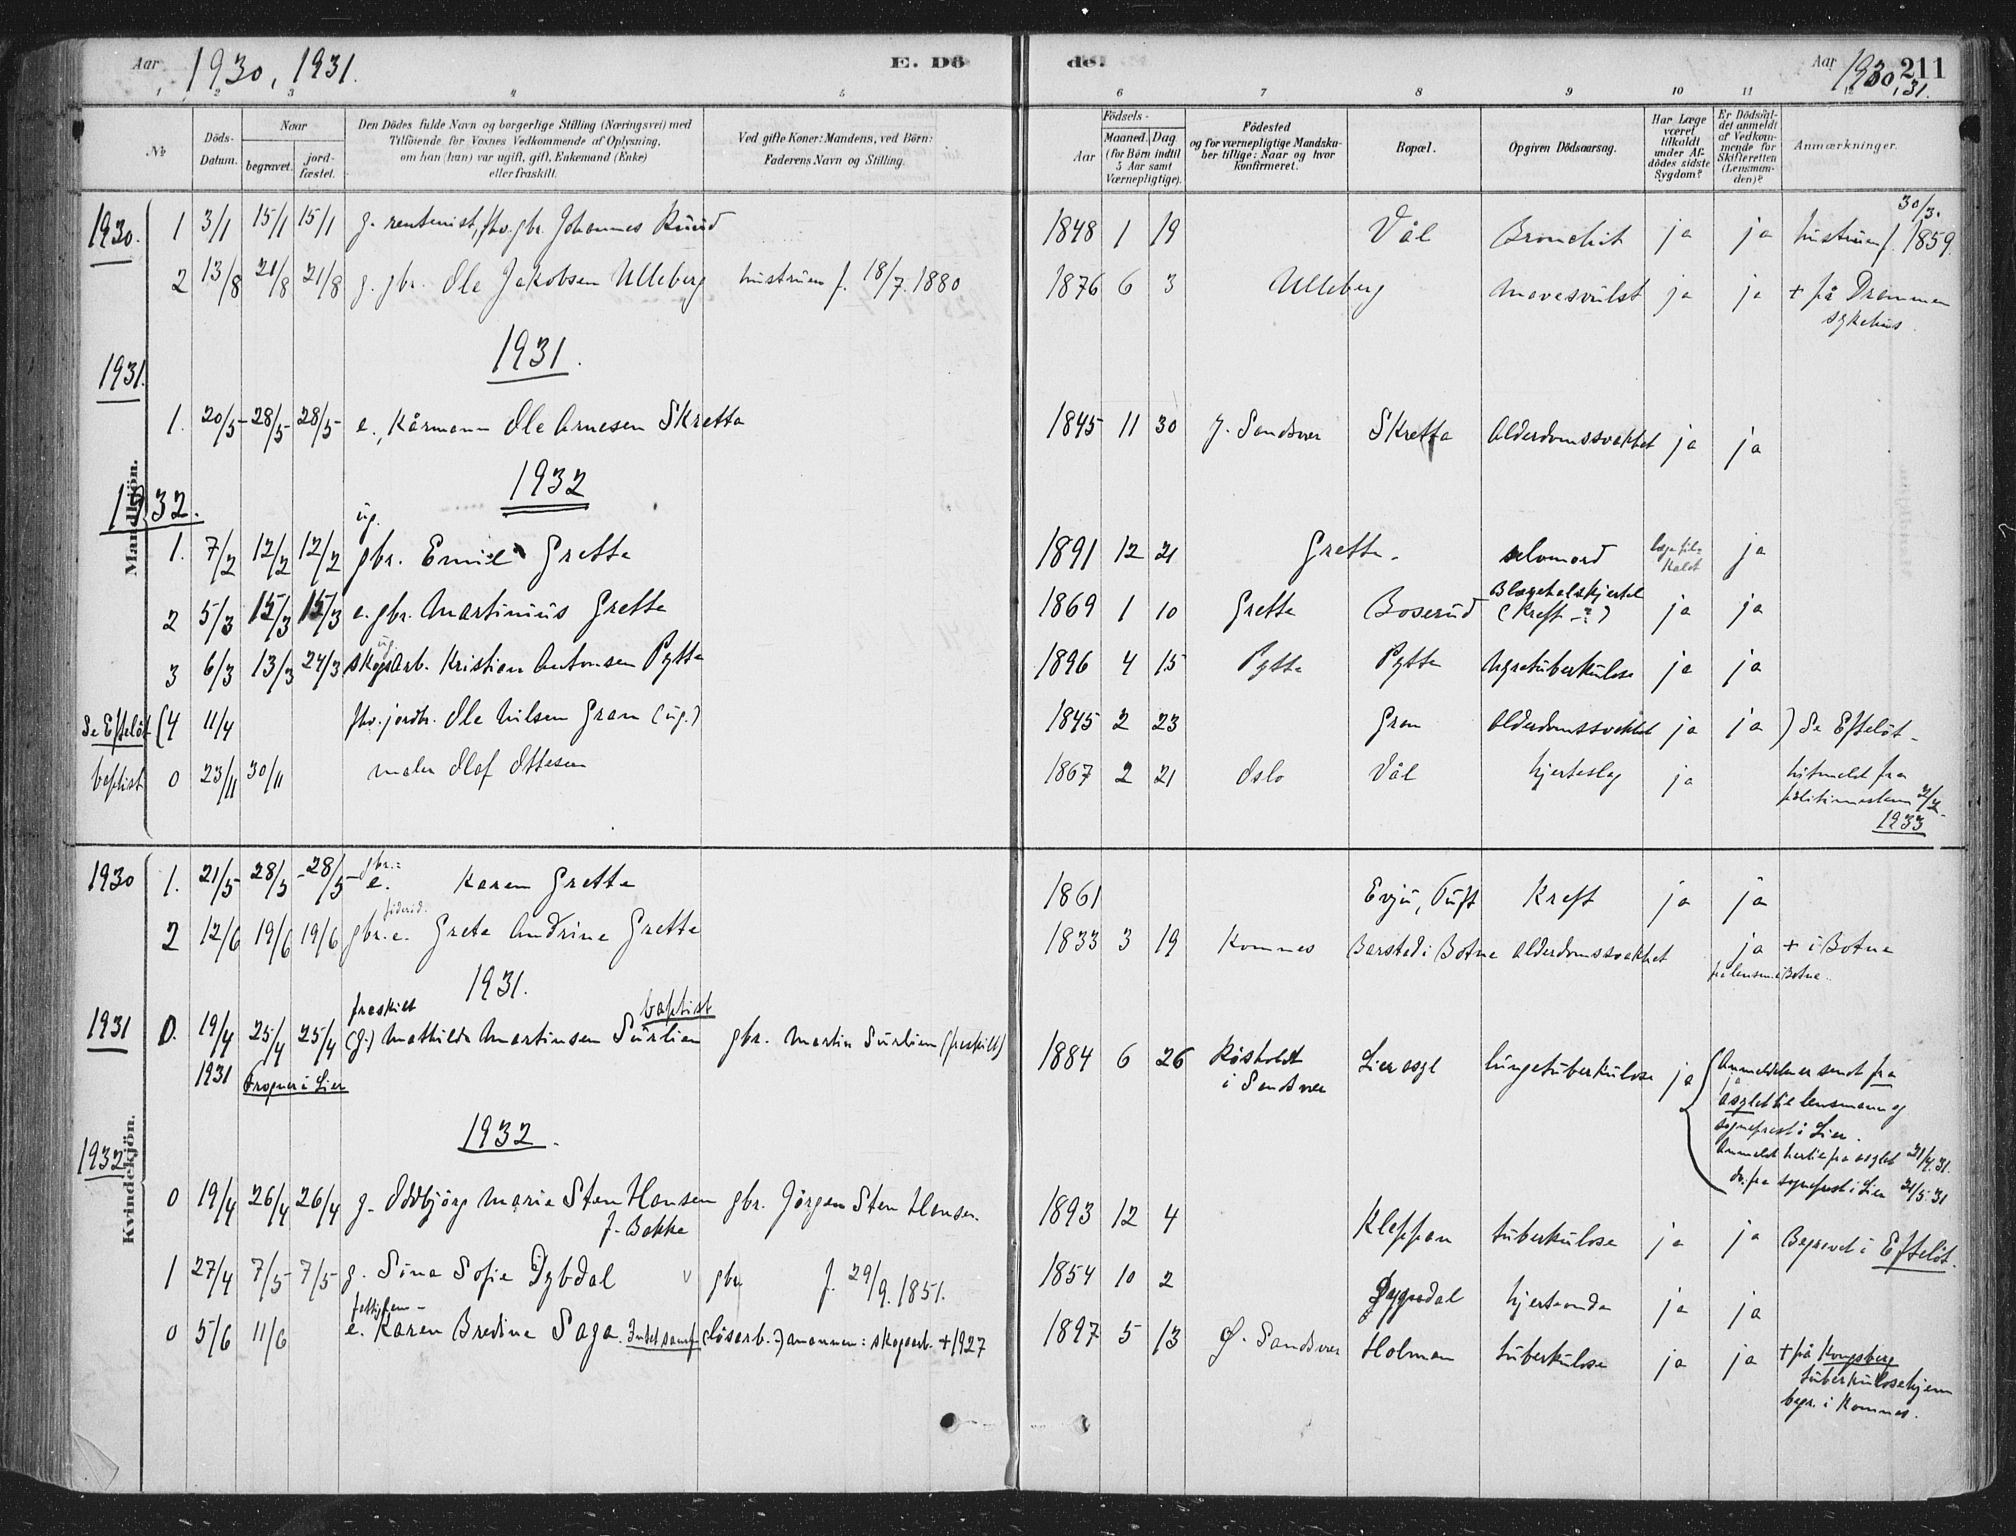 Aar 1930, 1931. E. Dö de. Aar 1930, 31. 211
1 2 3 4 5 6 7 8 9 10 11 12
№ Döds-Datum. Naar begravet. jord-fæstet. Den Dödes fulde Navn og borgerlige Stilling (Næringsvei) med Tilföiende for Voxnes Vedkommende af Oplysning, om han (hun) var ugift, gift, Enkemand (Enke) eller fraskilt. Ved gifte Koner: Mandens, ved Börn: Faderens Navn og Stilling. Födsels- Aar Maaned. Dag (for Börn indtil 5 Aar samt Værnepligtige). Födested og for værnepligtige Mandska-ber tillige: Naar og hvor konfirmeret. Bopæl. Opgiven Dödsaarsag. Har Læge været tilkaldt under Af-dödes sidste Sygdom? Er Dödsfal-det anmeldt af Vedkom-mende for Skifteretten (Lensman-den)? Anmærkninger.
Mandkjön.
1930. 1 3/1 15/1 15/1 g. rentenist, fhv. gbr. Johannes Ruud 1848 1 19 Vål Bronchit ja ja hustruen f. 30/3. 1859.
2 13/8 21/8 21/8 g. gbr. Ole Jakobsen Ulleberg hustruen f. 18/7 1880 1876 6 3 Ulleberg mavesvulst ja ja + på Drammen
sykehus.
1931.
1931. 1. 20/5 28/5 28/5 e., kårmann Ole Arnesen Skretta 1845 11 30 Y. Sandsver Skretta Alderdomssvakhet ja ja
1932
1932. 1. 7/2 12/2 12/2 ug. gbr. Emil Grette 1891 12 21 Grette. selvmord ja
2 5/3 15/3 15/3 e. gbr. Martinius Grette 1869 1 10 Grette Boserud (Kreft ?) ja ja
3 6/3 13/3 24/3 ug. skogsarb. Kristian Antonsen Pytte 1896 4 15 Pytte Pytte Nyretuberkulose ja ja
Se Efteløt (4 11/4 fhv. jordbr. Ole Nilsen Gran (ug.) 1845 2 23 Gran Alderdomssvakhet ja ja ) Se Efteløt
baptist 0 23/11 30/11 maler Olaf Ottesen 1867 2 21 Oslo Vål hjerteslag ja hitmeldt fra
politimesteren
1933
Kvindekjön.
1930 1. 21/5 28/5 28/5 gbr.: e. Karen Grette 1861 Evju, Tuft Kreft ja ja
2 12/6 19/6 19/6 gbr. e. Grete Andrine Grette 1833 3 19 Komnes Barstad i Botne Alderdomssvakhet ja + i Botne
fra lensm. i Botne.
1931.
1931 0. 19/4 25/4 25/4 fraskilt (g.) Mathilde Martinsen Surlien baptist gbr. Martin Surlien (fraskilt) 1884 6 26 Røsholdt
i Sandsver Lier asyl lungetuberkulose ja Anmeldelser sendt fra
1931 Frogner i Lier asylet til lensmann og
sogneprest i Lier.
Anmeldt hertil fra asylet 21/4.31.
Do. fra sogneprest i Lier 21/5.31
1932.
1932 0 19/4 26/4 26/4 g. Oddbjörg Marie Sten Hansen gbr. Jørgen Sten Hansen. 1893 12 4 Kleppan tuberkulose ja ja Begravet i Efteløt.
f. Bakke
1 27/4 7/5 7/5 g. Sina Sofie Dybdal gbr f. 29/9. 1851. 1854 10 2 Dybdal hjerteonde ja ja
0 5/6 11/6 e. Karen Bredine Saga. mannen: skogsarb. +1927 1897 5 13 Ø. Sandsver Holman tuberkulose ja ja + på Kongsberg
tuberkulosehjem
begr. i Komnes.